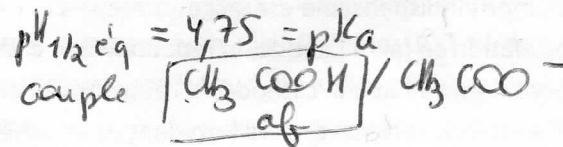 pH 1/2 éq = 4,75 = pKa
couple [CH3 COOH] / CH3 COO-
af